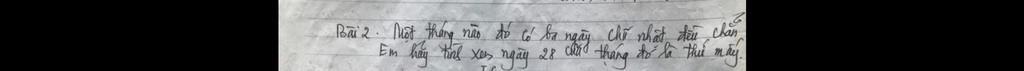 Bài 2. Một tháng nào đó có ba ngày chủ nhật đều chẵn
Em hãy tính xem ngày 28 của tháng đó là thứ mấy.